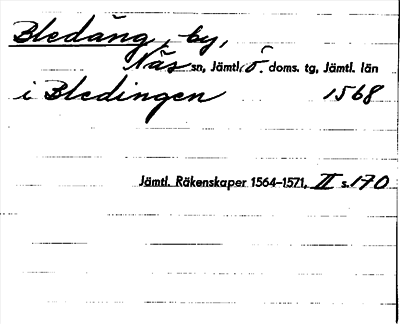 Bledäng, by,
Näs sn, Jämtl. ö. doms. tg, Jämtl. län
i Bledingen 1568
Jämtl. Räkenskaper 1564-1571, II s. 170